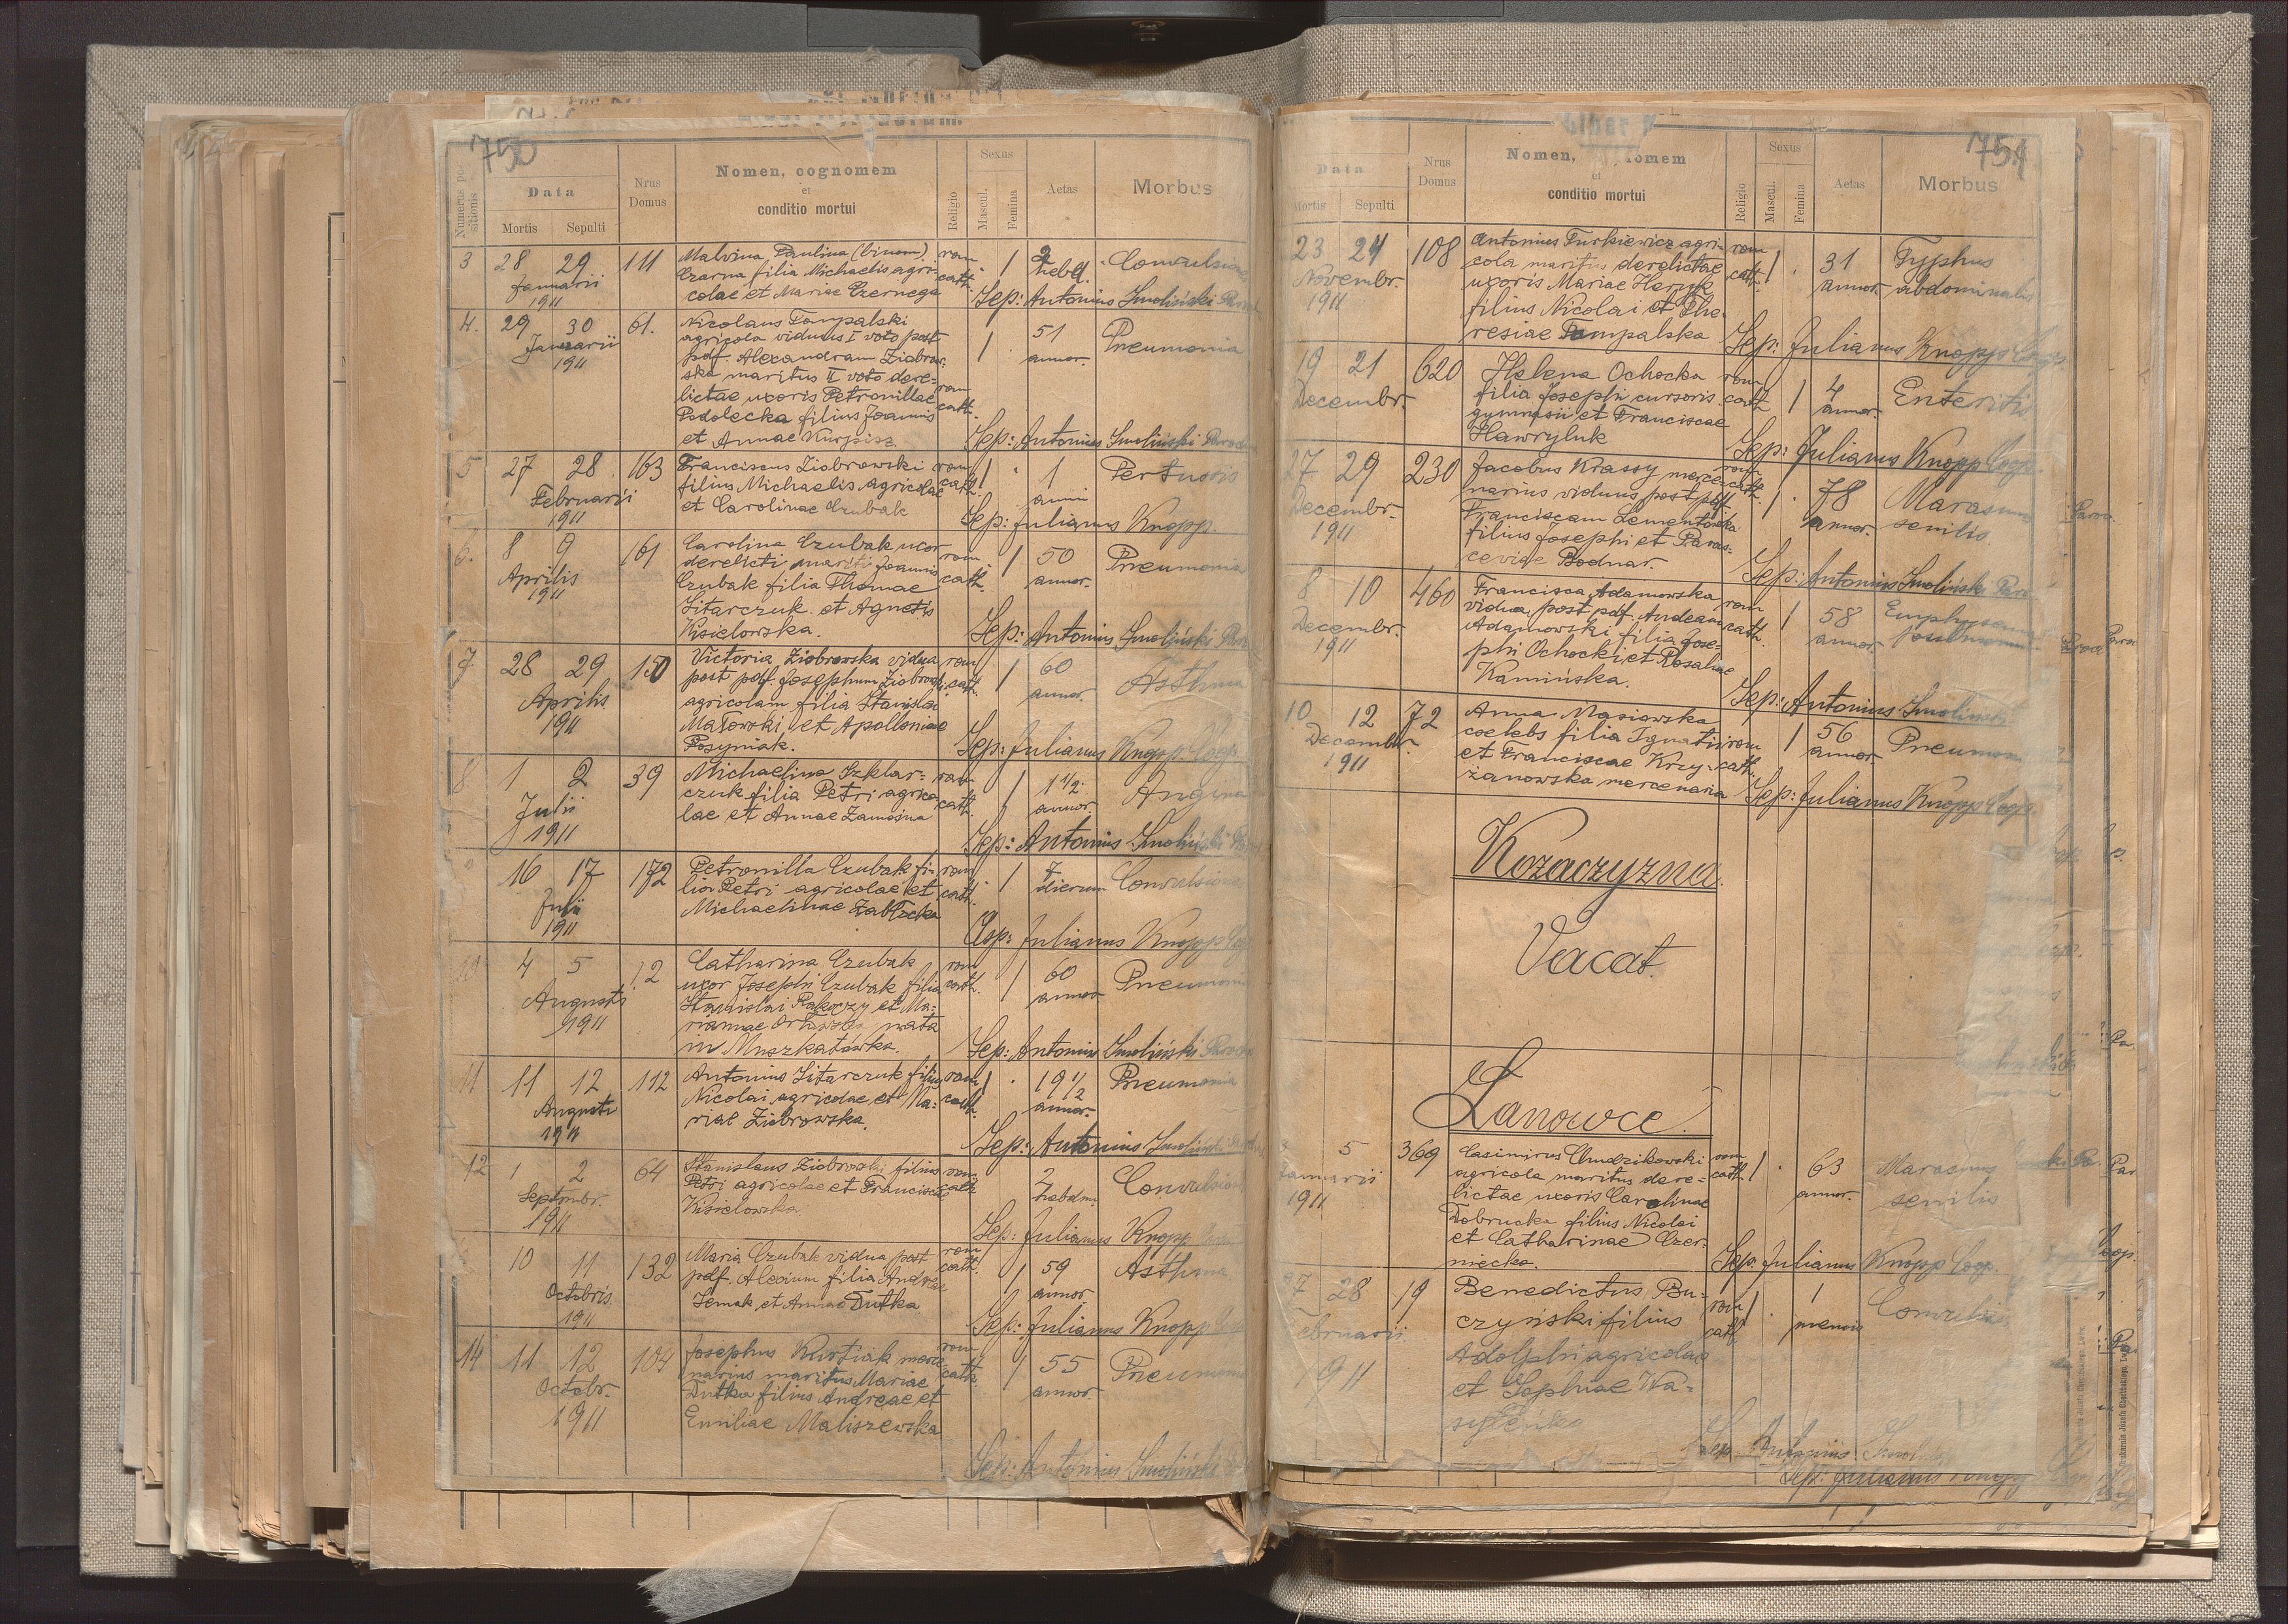 750
Numerus po-
sitionis
Data
Mortis Sepulti
Nrus
Domus
Nomen, cognomem
et
conditio mortui
Religio
Sexus
Mascul.
Femina
Aetas
Morbus
3 28 29 111 Malvina Paulina (binom) rom 1 2 Convulsion
Januarii Czarna filia Michaelis agri- cath. hebd.
1911 colae et Mariae Czernega Sep: Antonius Smoliński
4. 29 30 61. Nicolaus Tompalski 51 Pneumonia
Januarii agricola viduus I voto post 1 annor.
1911 pdf. Alexandram Ziobrow-
ska maritus II voto dere-
lictae uxoris Petronillae rom
Podolecka filius Joannis cath.
et Annae Kurpisz Sep: Antonius Smoliński
5 27 28 163 Franciscus Ziobrowski rom 1 1 Pertussis
Februarii filius Michaelis agricolae cath. anni
1911 et Carolinae Czubak Sep: Julianus Knopp.
6. 8 9 161 Carolina Czubak uxor rom 1 50 Pneumonia
Aprilis derelicti mariti Joannis cath. annor.
1911 Czubak filia Thomae
Sitarczuk et Agnetis
Kisielowska. Sep: Antonius Smoliński
7. 28 29 150 Victoria Ziobrowska vidua rom 1 60 Asthma
Aprilis post pdf. Josephum Ziobrowski cath. annor.
1911 agricolam filia Stanislai
Małowski et Apolloniae
Posyniak. Sep: Julianus Knopp Coop.
8 1 2 39 Michaelina Szklar- rom 1 1 1/2 Angina
Julii czuk filia Petri agrico- cath. annor
1911 lae et Annae Zamojna
Sep: Antonius Smoliński
16 17 172 Petronilla Czubak fi- rom 1 7 Convulsiones
Julii lia Petri agricolae et cath. dierum
1911 Michaelinae Zabłocka
Sep: Julianus Knopp
10 4 5 12 Catharina Czubak rom 1 60 Pneumonia
Augusti uxor Josephi Czubak filia cath. annor
1911 Stanislai Rakoczy et Ma-
riannae nata
in Muszkatówka. Sep: Antonius Smoliński
11 11 12 112 Antonius Sitarczuk filius rom 1 19 1/2 Pneumonia
Augusti Nicolai agricolae et Ma- cath. annor.
1911 riae Ziobrowska.
Sep: Antonius Smoliński
12 1 2 64 Stanislaus Ziobrowski filius rom 2 Convulsion
Septmbr. Petri agricolae et Franciscae cath hebdm
1911 Kisielowska.
Sep: Julianus Knopp
10 11 132 Maria Czubak vidua post rom 1 59 Asthma
Octobris pdf. Alexium filia Andreae cath. annor
1911 Semak et Annae Dutka
Sep: Julianus Knopp
14 11 12 104 Josephus Kurtiak merce- rom 1 55 Pneumonia
Octobr. narius maritus Mariae cath. annor.
1911 Dutka filius Andreae et
Emiliae Maliszewska
Sep: Antonius Smoliński
751
Liber
Data
Mortis Sepulti
Nrus
Domus
Nomen,
et
conditio mortui
Religio
Sexus
Mascul.
Femina
Aetas
Morbus
23 24 108 Antonius Turkiewicz agri- rom 1 31 Typhus
Novembr. cola maritus derelictae cath. annor. abdominalis
1911 uxoris Mariae
filius Nicolai et The-
resiae Tompalska Sep: Julianus Knopp Coop
19 21 620 Helena Ochocka rom 1 4 Enteritis
Decembr. filia Josephi cursoris cath annor.
gymnasii et Franciscae
Hawryluk Sep: Julianus Knopp Coop.
27 29 230 Jacobus Krassy merce- rom 1 78 Marasmus
Decembr. narius viduus post pdf. cath. annor. senilis
1911 Franciscam Lementowska
filius Josephi et Paras-
ceviae Bodnar. Sep: Antonius Smoliński
8 10 460 Francisca Adamowska rom 1 58 Emphysema
Decembr. vidua post pdf. Andream cath annor. pulmonum
1911 Adamowski filia Jose-
phi Ochocki et Rosaliae
Kamińska. Sep: Antonius Smoliński
10 12 72 Anna Masiowska 56 Pneumon
Decembr. coelebs filia Ignatii rom 1 annor
1911 et Franciscae Krzy- cath.
żanowska mercenaria Sep: Julianus Knopp Coop.
Kozaczyzna.
Vacat.
Lanowce.
5 369 Casimirus Chudzikowski rom 1 63 Marasmus
Januarii agricola maritus dere- cath. annor. senilis
1911 lictae uxoris Carolinae
Dobrucka filius Nicolai
et Catharinae Czer-
niecka. Sep. Julianus Knopp Coop.
27 28 19 Benedictus Bu- rom 1 1 Convulsio
Februarii czyński filius cath. mensis
1911 Adolphi agricolae
et Sophiae Wa-
sylenko
Sep. Antonius Smol
Sep: Julianus